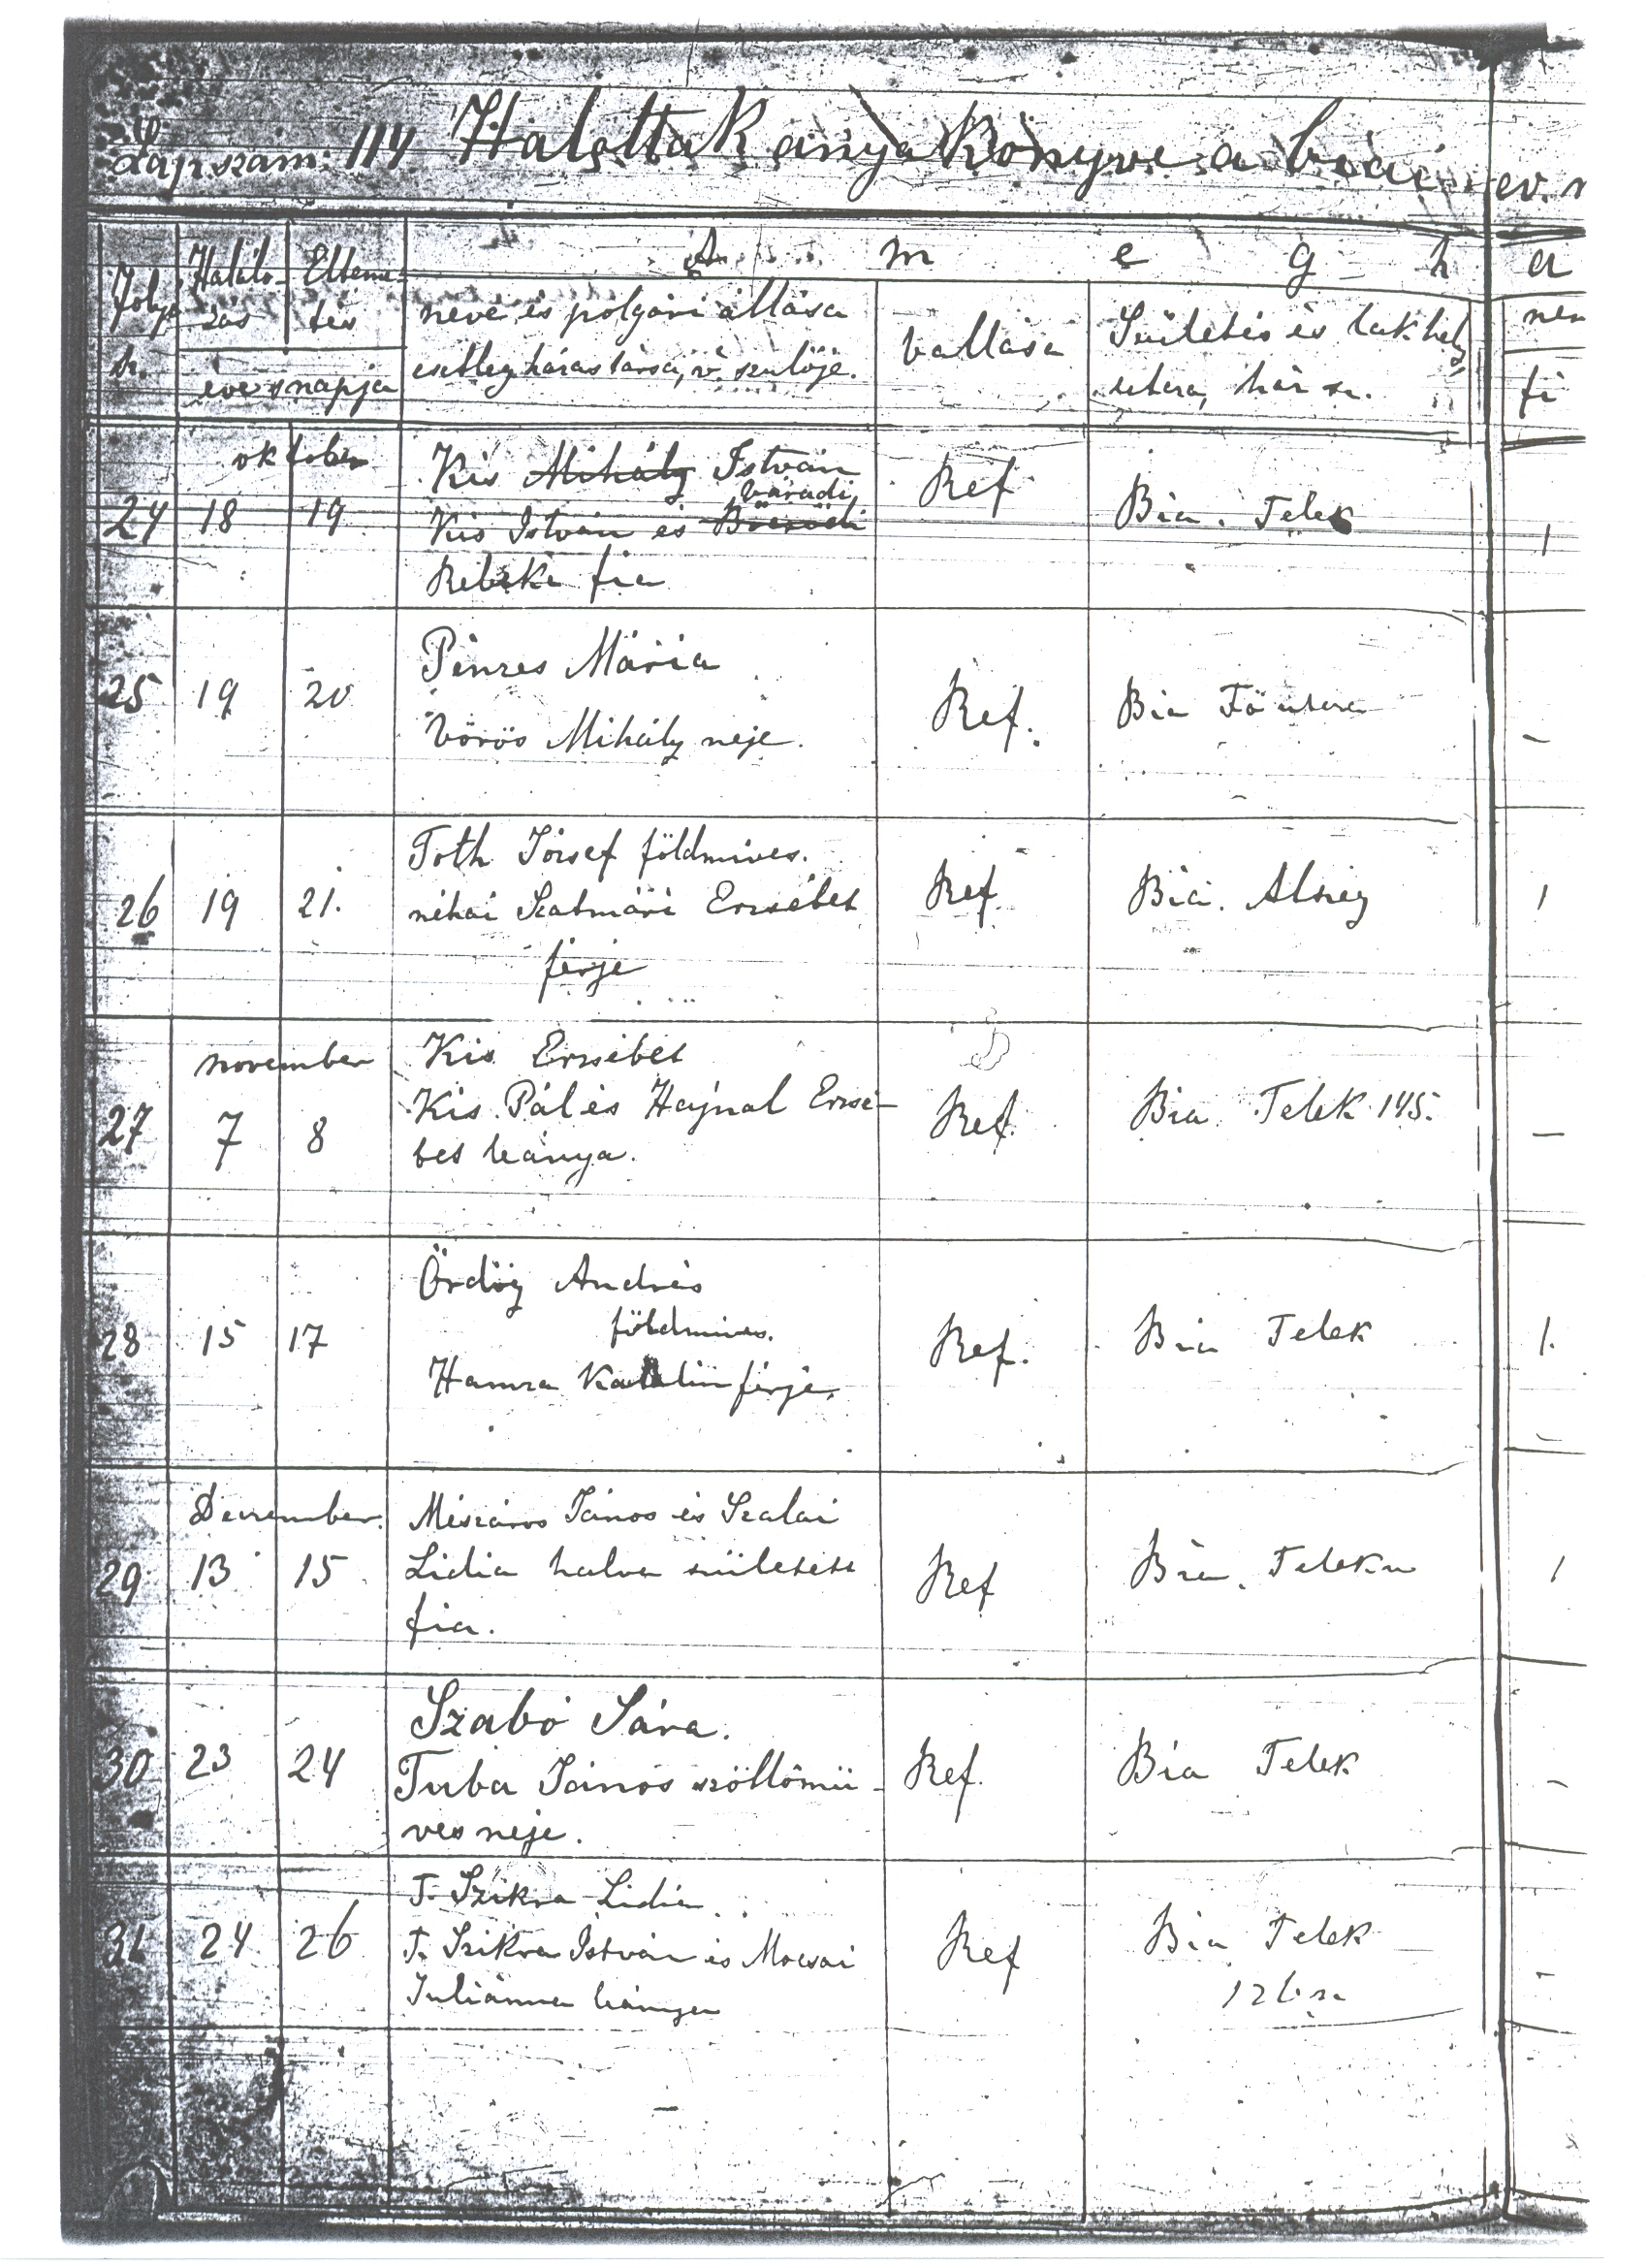 Lapszám: 114 Halottak anyakönyve a biai ev. r
A m e g h a
Folyó
sz.
Halálo-
zás
Elteme-
tés
éve s napja
neve és polgári állása
esetleg házastársa, v. szülője.
vallása
Születés és lakhely,
utcza, ház sz.
nem
fi
október
24 18 19
Kis Mihály István
Váradi
Kis István és
Rebeka fia
Ref
Bia. Telek
1
25 19 20
Pénzes Mária
Vörös Mihály neje.
Ref.
Bia Fő utcza
-
26 19 21.
Toth József földmives.
néhai Szatmári Erzsébet
férje
Ref.
Bia. Alszeg
1
november
27 7 8
Kis Erzsébet
Kis Pál és Hajnal Erzsé-
bet leánya.
Ref.
Bia Telek 145.
-
28 15 17
Ördög András
földmives.
Hamza Katalin férje.
Ref.
Bia Telek
1.
Deczember.
29 13 15
Mészáros János és Szalai
Lidia halva született
fia.
Ref
Bia. Telek
1
30 23 24
Szabó Sára.
Turba János szöllőmü-
ves neje.
Ref.
Bia Telek
-
31 24 26
T. Szikra Lidia
T. Szikra István és Mocsai
Juliánna leánya
Ref
Bia Telek
-